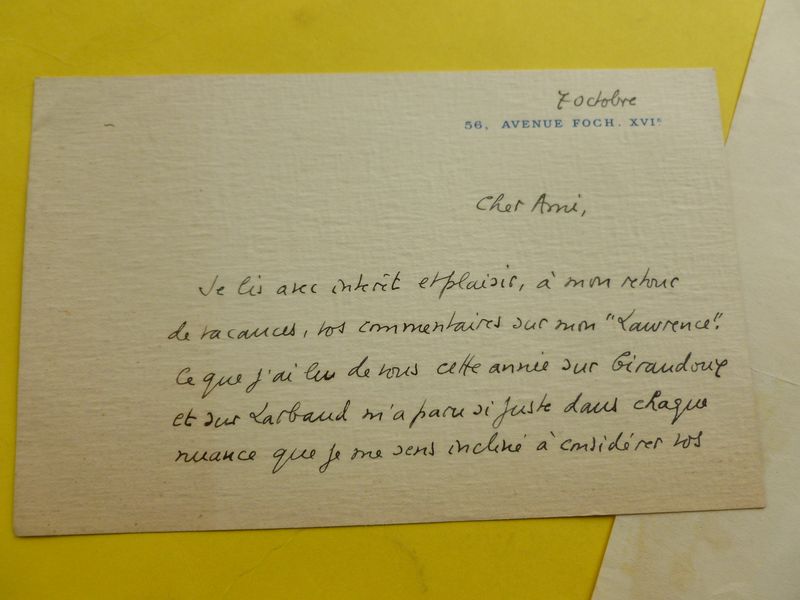 7 octobre
56, AVENUE FOCH. XVIᵉ
Cher Ami,
Je lis avec intérêt et plaisir, à mon retour
de vacances, vos commentaires sur mon "Lawrence".
Ce que j'ai lu de vous cette année sur Giraudoux
et sur Larbaud m'a paru si juste dans chaque
nuance que je me sens incliné à considérer vos